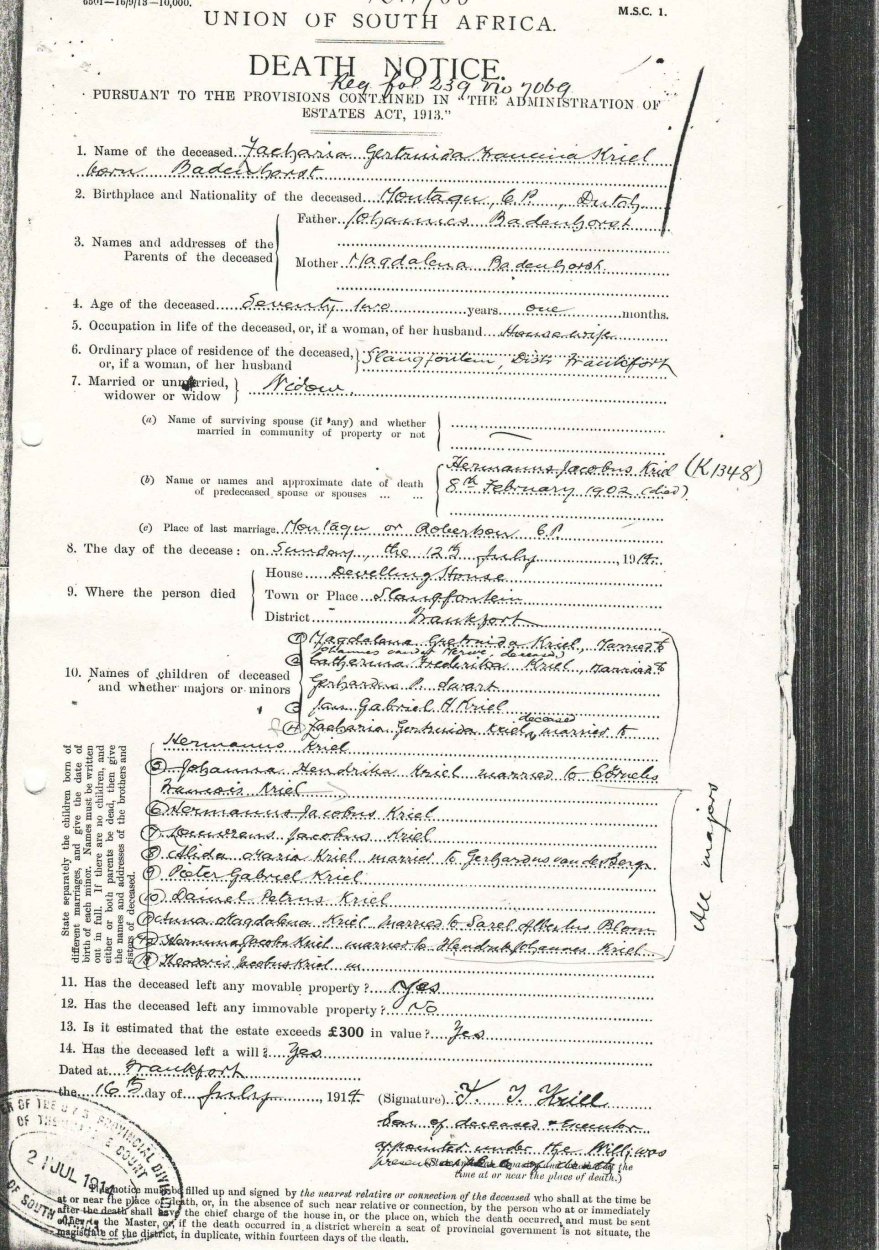 6501—16/9/13—10,000.
M.S.C. 1.
UNION OF SOUTH AFRICA.
DEATH NOTICE.
Reg fol 239 No 7069
PURSUANT TO THE PROVISIONS CONTAINED IN "THE ADMINISTRATION OF
ESTATES ACT, 1913."
1. Name of the deceased Zacharia Gertruida Francina Kriel
born Badenhorst
2. Birthplace and Nationality of the deceased Montagu, C.P. Dutch
3. Names and addresses of the
Parents of the deceased
Father Johannes Badenhorst
Mother Magdalena Badenhorst
4. Age of the deceased Seventy two years one months.
5. Occupation in life of the deceased, or, if a woman, of her husband Housewife
6. Ordinary place of residence of the deceased,
or, if a woman, of her husband
Slangfontein, Distr Frankfort
7. Married or unmarried,
widower or widow
Widow.
(a) Name of surviving spouse (if any) and whether
married in community of property or not
(b) Name or names and approximate date of death
of predeceased spouse or spouses ... ...
Hermanus Jacobus Kriel (K1348)
8th February 1902 (died)
(c) Place of last marriage Montagu or Robertson C.P.
8. The day of the decease: on Sunday, the 12th July, 1914.
9. Where the person died
House Dwelling House
Town or Place Slangfontein
District Frankfort
10. Names of children of deceased
and whether majors or minors
1 Magdalena Gertruida Kriel, Married to
Johannes van der Merwe, deceased
2 Catherina Frederika Kriel, married to
Gerhardus P. Swart
3 Jan Gabriel H Kriel
4 Zacharia Gertruida Kriel, deceased married to
Hermanus Kriel
5 Johanna Hendrika Kriel married to Cornelis
Francois Kriel
6 Hermanus Jacobus Kriel
7 Lourens Jacobus Kriel
8 Alida Maria Kriel married to Gerhardus van der Berg
9 Pieter Gabriel Kriel
10 Daniel Petrus Kriel
11 Anna Magdalena Kriel married to Sarel Albertus Blom
12 Hermina Jacoba Kriel married to Hendrik Johannes Kriel
13 Jacobus Kriel
All majors
State separately the children born of
different marriages, and give the date of
birth of each minor. Names must be written
out in full. If there are no children, and
either or both parents be dead, then give
the names and addresses of the brothers and
sisters of deceased.
11. Has the deceased left any movable property? Yes
12. Has the deceased left any immovable property? No
13. Is it estimated that the estate exceeds £300 in value? Yes
14. Has the deceased left a will? Yes
Dated at Frankfort
the 16th day of July, 1914
(Signature)
Son of deceased & Executor
appointed under the Will, was
present at place of death
time at or near the place of death.)
21 JUL 1914
This notice must be filled up and signed by the nearest relative or connection of the deceased who shall at the time be
at or near the place of death, or, in the absence of such near relative or connection, by the person who at or immediately
after the death shall have the chief charge of the house in, or the place on, which the death occurred, and must be sent
either to the Master, or, if the death occurred in a district wherein a seat of provincial government is not situate, the
magistrate of the district, in duplicate, within fourteen days of the death.